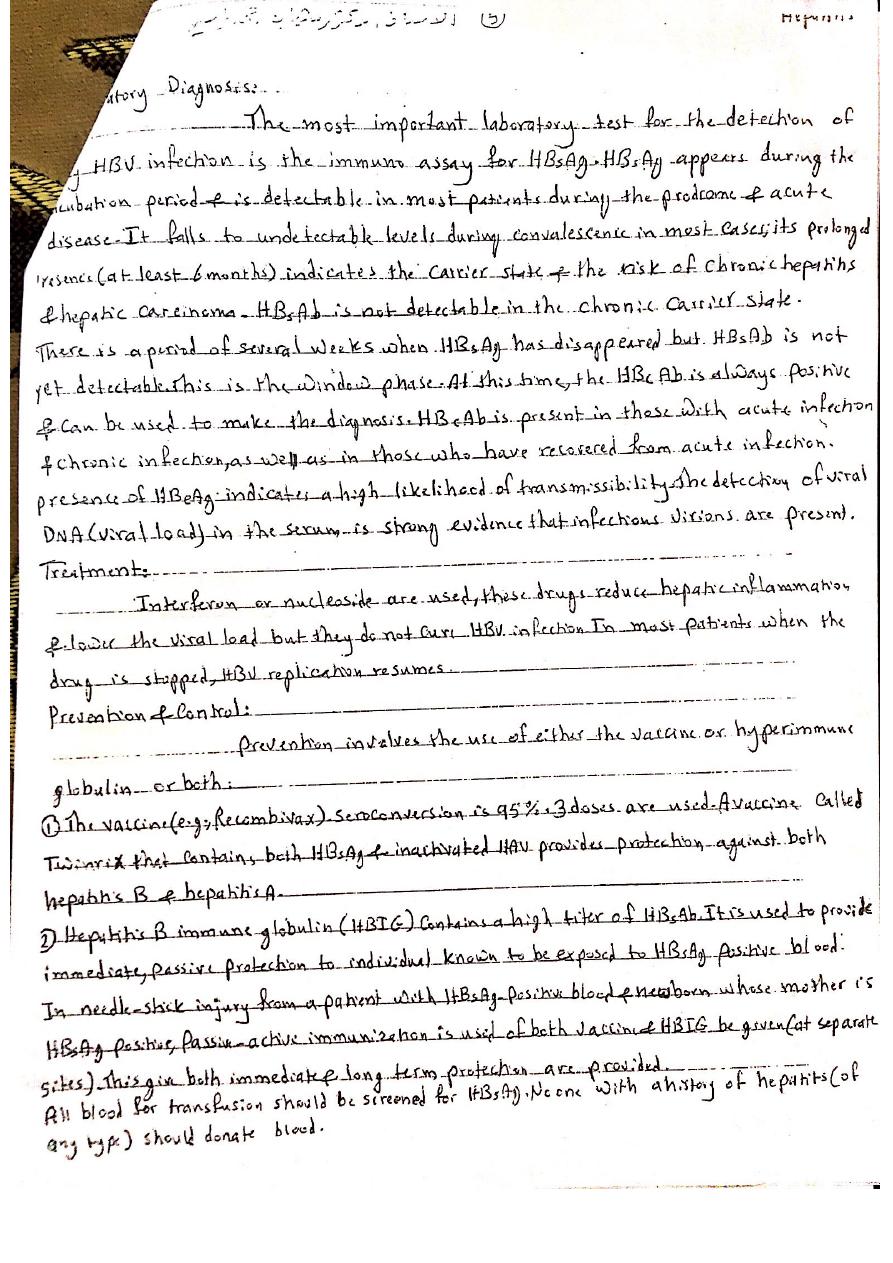 الاستاذ دكتور شهاب (5) Hepatitis
atory Diagnosis:
The most important laboratory test for the detection of
g HBV infection is the immuno assay for HBsAg. HBsAg appears during the
incubation period & is detectable in most patients during the prodrome & acute
disease. It falls to undetectable levels during convalescence in most cases; its prolonged
presence (at least 6 months) indicates the carrier state & the risk of chronic hepatitis
& hepatic carcinoma. HBsAb is not detectable in the chronic carrier state.
There is a period of several weeks when HBsAg has disappeared but HBsAb is not
yet detectable. This is the window phase. At this time, the HBcAb is always positive
& can be used to make the diagnosis. HBcAb is present in those with acute infection
& chronic infection, as well as in those who have recovered from acute infection.
presence of HBeAg indicates a high likelihood of transmissibility. The detection of viral
DNA (viral load) in the serum is strong evidence that infectious virions are present.
Treatment:
Interferon or nucleoside are used, these drugs reduce hepatic inflammation
& lower the viral load but they do not cure HBV infection In most patients when the
drug is stopped, HBV replication resumes.
Prevention & Control:
prevention involves the use of either the vaccine or hyperimmune
globulin or both:
① The vaccine (e.g; Recombivax) seroconversion is 95%. 3 doses are used. A vaccine called
Twinrix that contains both HBsAg & inactivated HAV provides protection against both
hepatitis B & hepatitis A.
2) Hepatitis B immune globulin (HBIG) contains a high titer of HBsAb. It is used to provide
immediate, passive protection to individual known to be exposed to HBsAg positive blood.
In needle-stick injury from a patient with HBsAg-positive blood & newborn whose mother is
HBsAg positive, Passive-active immunization is used of both vaccine & HBIG be given (at separate
sites). This give both immediate & long term protection are provided.
All blood for transfusion should be screened for HBsAg. No one with a history of hepatitis (of
any type) should donate blood.